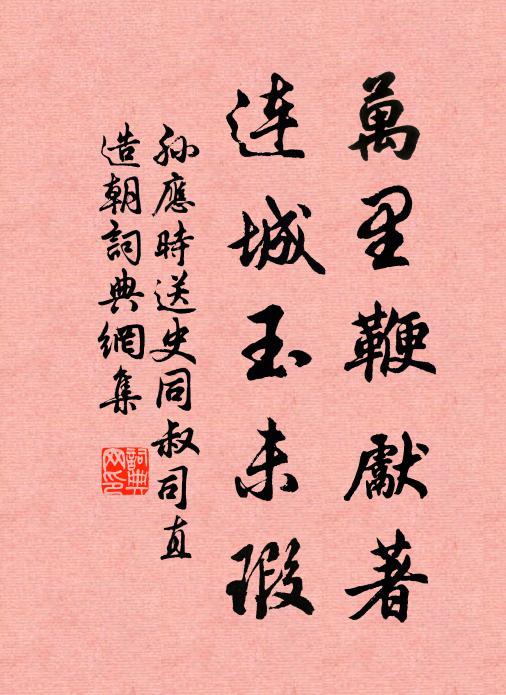 萬里鞭獻著
連城玉未瑕
孫應時送史同叔司直
造朝詞典網集
詞典
网印